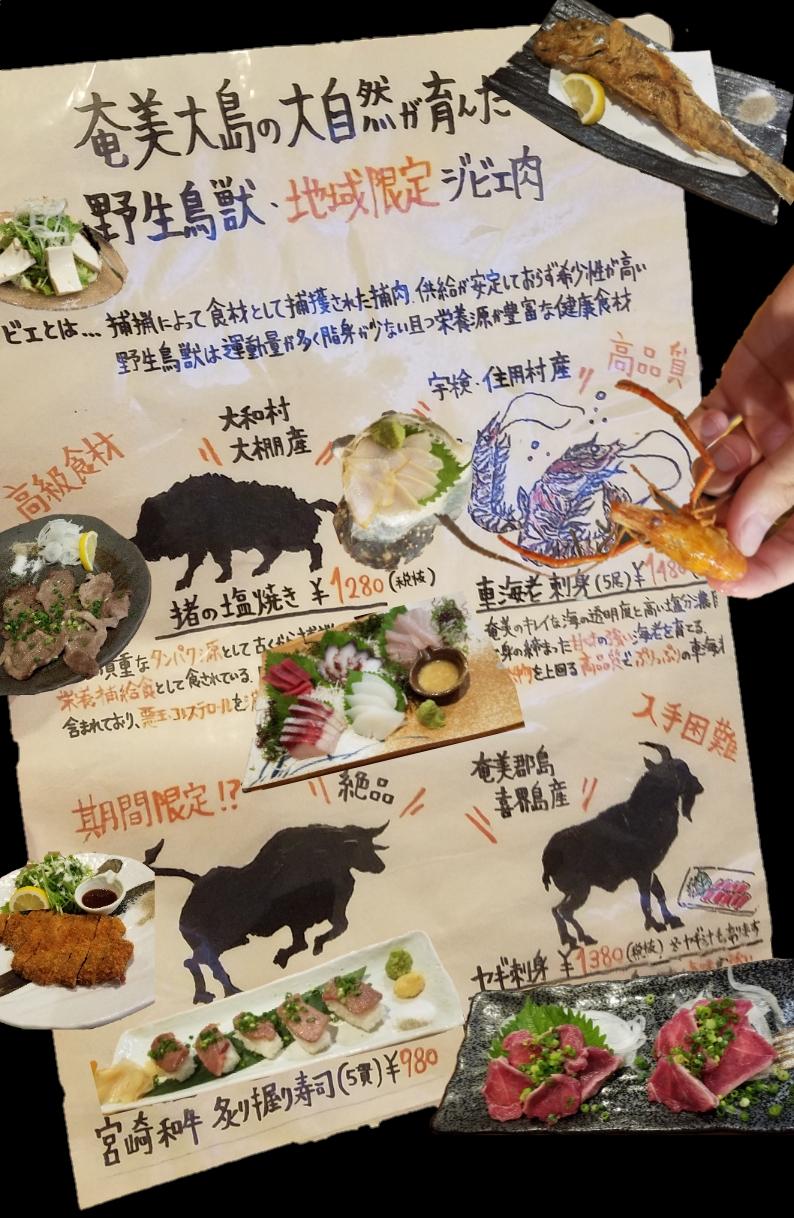 奄美大島の大自然が育んだ
野生鳥獣・地域限定ジビエ肉
ビエとは… 捕猟によって食材として捕獲された捕肉。供給が安定しておらず希少性が高い
野生鳥獣は運動量が多く脂身が少ない且つ栄養源が豊富な健康食材
高級食材
大和村
大棚産
猪の塩焼き ¥1280(税抜)
貴重なタンパク源として古くから
栄養補給食として食されている。
含まれており、悪玉コルステロールを
宇検・住用村産
高品質
車海老刺身(5尾)¥1480
奄美のキレイな海の透明度と高い塩分濃
身の締まった甘味の強い海老を育てる。
物を上回る高品質でぷりっぷりの車海
期間限定!?
絶品
宮崎和牛 炙り握り寿司(5貫)¥980
入手困難
奄美郡島
喜界島産
ヤギ刺身 ¥1380(税抜) ※ヤギ汁も有ります